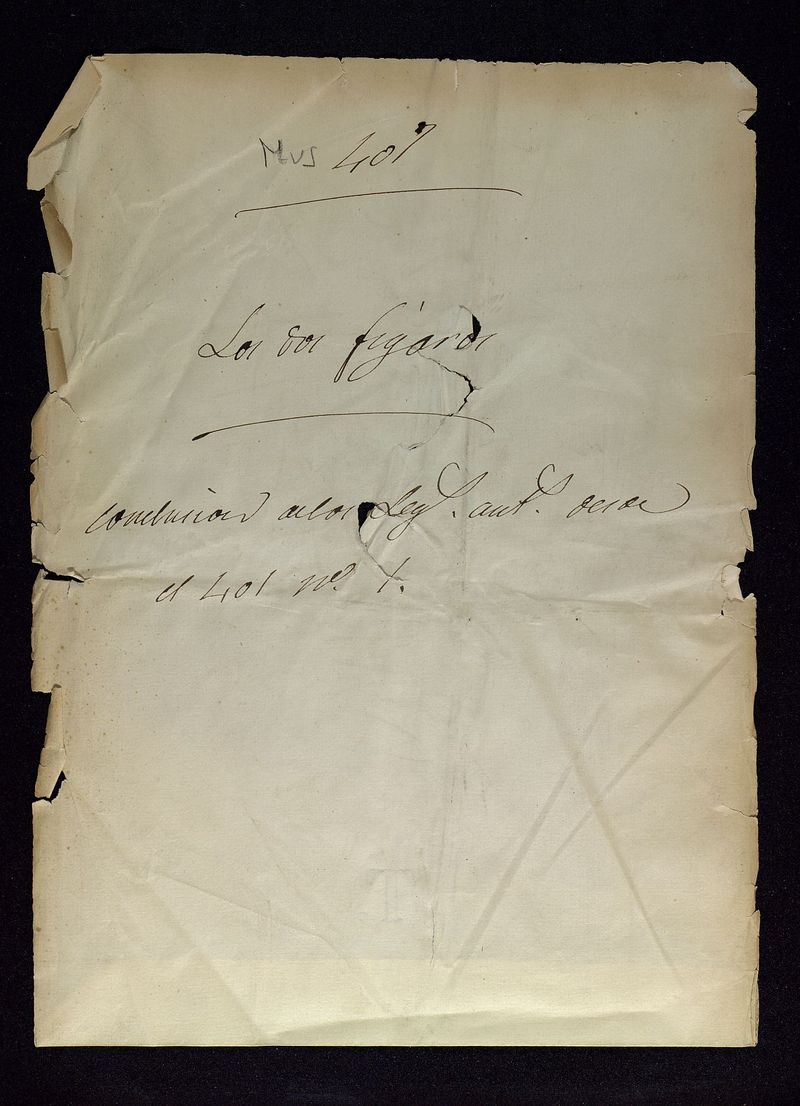 Mus 407
Los dos figáros
conclusion delos Leg.s ant.s desde
el 401 nº 1.
T